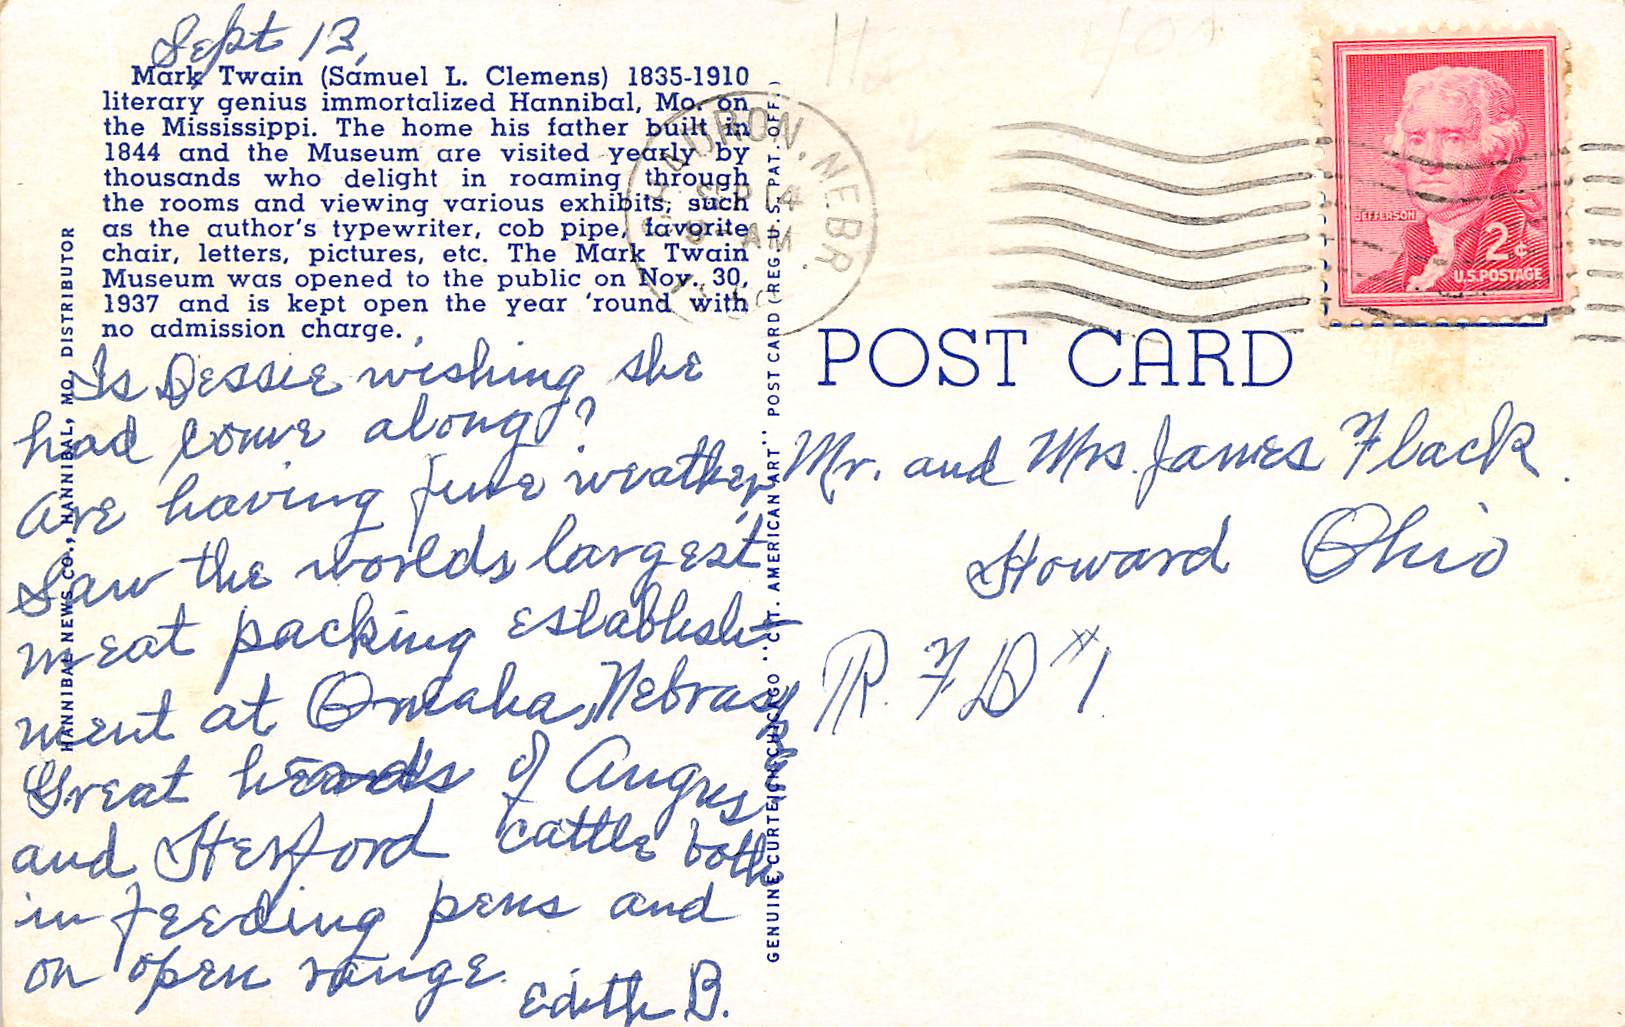 Sept 13,
Mark Twain (Samuel L. Clemens) 1835-1910
literary genius immortalized Hannibal, Mo. on
the Mississippi. The home his father built in
1844 and the Museum are visited yearly by
thousands who delight in roaming through
the rooms and viewing various exhibits; such
as the author's typewriter, cob pipe, favorite
chair, letters, pictures, etc. The Mark Twain
Museum was opened to the public on Nov. 30,
1937 and is kept open the year 'round with
no admission charge.
Is Dessie wishing she
had come along?
are having fine weather,
Saw the worlds largest
meat packing establish-
ment at Omaha, Nebraska
Great herds of Angus
and Herford cattle both
in feeding pens and
on open range.
Edith B.
HANNIBAL NEWS CO., HANNIBAL, MO. DISTRIBUTOR
GENUINE CURTEICH-CHICAGO "C.T. AMERICAN ART" POST CARD (REG. U.S. PAT. OFF.)
CHADRON, NEBR.
SEP 14
AM
JEFFERSON
2¢
U.S. POSTAGE
POST CARD
Mr. and Mrs. James Flack.
Howard Ohio
R. F D #1.